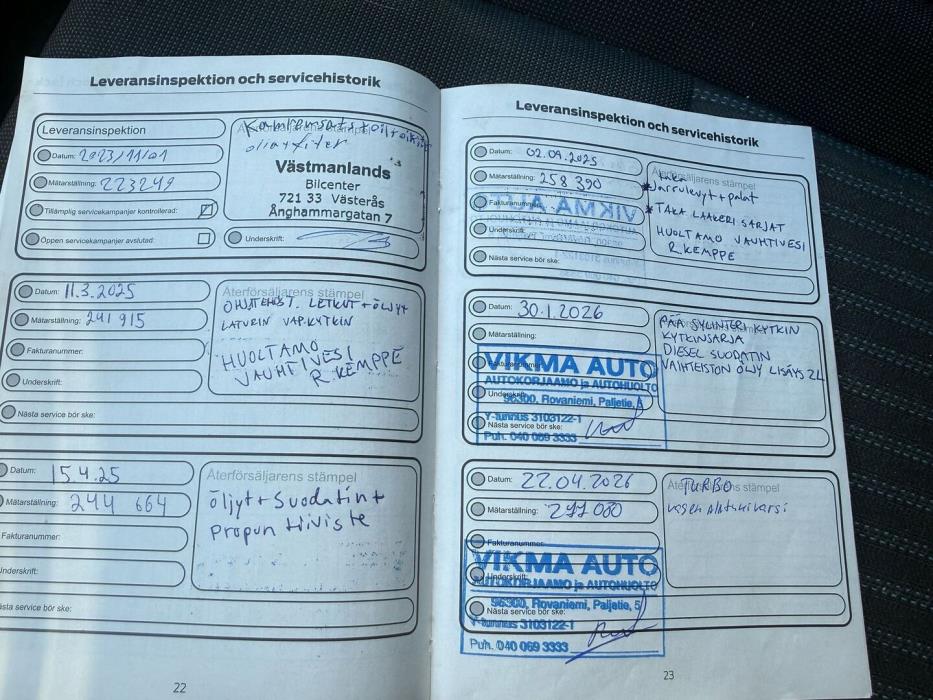 Leveransinspektion och servicehistorik
Leveransinspektion
Datum: 2023/11/01
Mätarställning: 223249
Tillämplig servicekampanjer kontrollerad:
Öppen servicekampanjer avslutad:
Återförsäljarens stämpel
Västmanlands
Bilcenter
721 33 Västerås
Ånghammargatan 7
Underskrift:
Datum: 11.3.2025
Mätarställning: 241 915
Fakturanummer:
Underskrift:
Nästa service bör ske:
Återförsäljarens stämpel
OHJTEHOST. LETKUT + ÖLJYT
LATURIN VAP.KYTKIN
HUOLTAMO
VAUHTIVESI
R.KEMPPE
Datum: 15.4.25
Mätarställning: 244 664
Fakturanummer:
Underskrift:
Nästa service bör ske:
Återförsäljarens stämpel
öljyt + Suodatin +
Propun tiiviste
22
Leveransinspektion och servicehistorik
Datum: 02.09.2025
Mätarställning: 258 390
Fakturanummer:
Underskrift:
Nästa service bör ske:
Återförsäljarens stämpel
Jarrulevyt + palat
* TAKA LAAKERI SARJAT
HUOLTAMO VAUHTIVESI
R.KEMPPE
Datum: 30.1.2026
Mätarställning:
Fakturanummer:
Underskrift:
Nästa service bör ske:
PÄÄ SYLINTERI KYTKIN
KYTKINSARJA
DIESEL SUODATIN
VAIHTEISTON ÖLJY LISÄYS 2L
VIKMA AUTO
AUTOKORJAAMO ja AUTOHUOLTO
96300, Rovaniemi, Paljetie, 5
Y-tunnus 3103122-1
Puh. 040 069 3333
Datum: 22.04.2026
Mätarställning: 271 080
Fakturanummer:
Underskrift:
Nästa service bör ske:
Återförsäljarens stämpel
TURBO
VIKMA AUTO
AUTOKORJAAMO ja AUTOHUOLTO
96300, Rovaniemi, Paljetie, 5
Y-tunnus 3103122-1
Puh. 040 069 3333
23